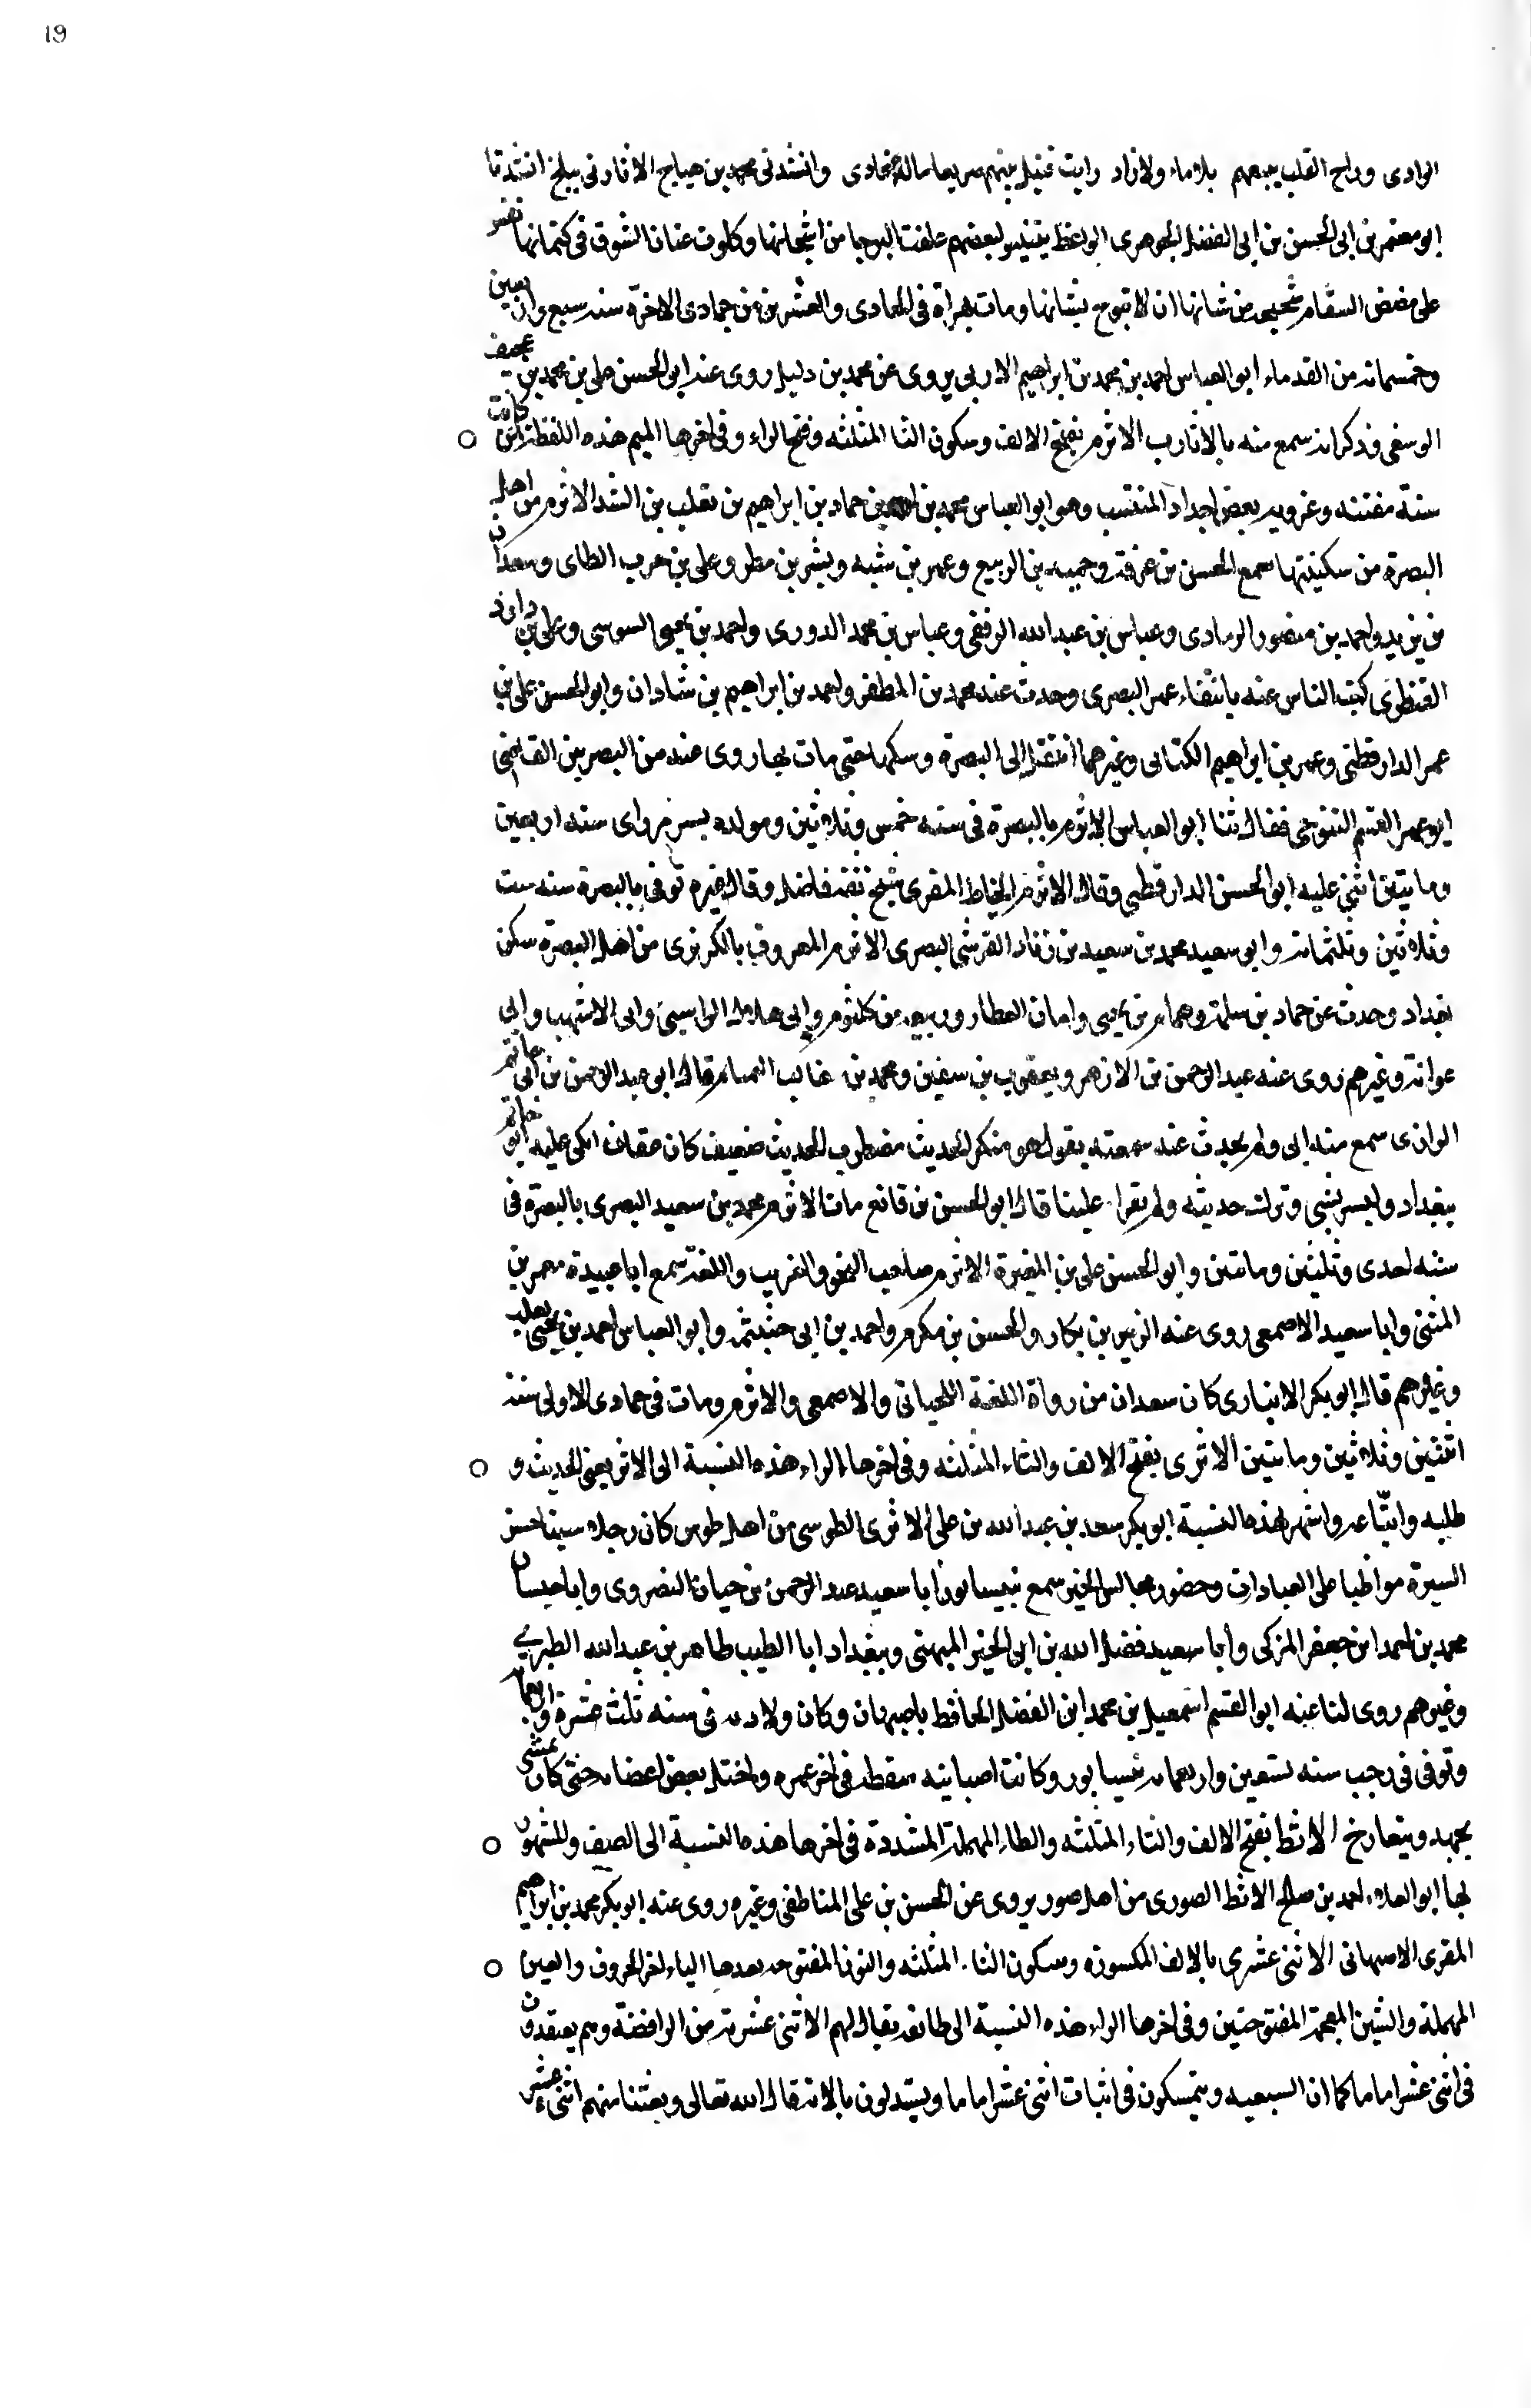 19
الوادى وراح القلب يتبعهم بلا ماء ولا زاد رايت قتيل بينهم صريعا ماله فادى وانشدنى محمد بن هياج الاثاربى ببلخ انشدنا
ابو معتمر بن ابى الحسن بن ابى الفضل الجوهرى الواعظ بتنيس لبعضهم علقت البوحا من اشجانها وكلوت عنان الشوق فى كتمانها نفسى
على مضض السقام شحيحة من شانها ان لا تبوح بشانها ومات بهراة فى الحادى والعشرين من جمادى الاخرة سنه سبع واربعين
وخمسمائه من القدماء ابو العباس احمد بن محمد بن ابراهيم الاثاربى يروى عن محمد بن دليل روى عنه ابو الحسن على بن محمد بن عجيف
الوسقى وذكر انه سمع منه بالاثارب الاثرم بفتح الالف وسكون الثا المثلثه وفتح الراء وفى اخرها الميم هذه اللفظة لمن كانت
سنة مفتته وعرف به بعض اجداد المنتسب وهو ابو العباس محمد بن احمد بن حماد بن ابراهيم بن ثعلب بن الشد الاثرم من اهل
البصرة من سكينتها سمع الحسن بن عرفة وحميد بن الربيع وعمر بن شبه وبشر بن مطر وعلى بن حرب الطاى وسعدان
بن يزيد واحمد بن منصور الرمادى وعباس بن عبد الله الرقفى وعباس بن محمد الدورى واحمد بن يحيى السوسى وعلى بن داود
القنطرى كتب الناس عنه بانتقاء عمر البصرى وحدث عنه محمد بن المظفر واحمد بن ابراهيم بن شادان وابو الحسن على بن
عمر الدارقطنى وعمر بن ابراهيم الكتانى وغيرهما انتقل الى البصرة وسكنها حتى مات بها روى عنه من البصريين القاضى
ابو عمر القسم التنوخى فقال ثنا ابو العباس الاثرم بالبصرة فى سنه خمس وثلاثين ومولده بسر من راى سنه اربعين
وماتين اثنى عليه ابو الحسن الدارقطنى وقال الاثرم الخياط المقرى شيخ ثقه فاضل وقال غيره توفى بالبصرة سنه ست
وثلاثين وثلثمائه وابو سعيد محمد بن سعيد بن زياد القرشى البصرى الاثرم المعروف بالكريزى من اهل البصره سكن
بغداد وحدث عن حماد بن سلمه وهمام بن يحيى وابان العطار وربيعه بن كلثوم وابى هلال الراسبى وابى الاشهب وابى
عوانه وغيرهم روى عنه عبد الرحمن بن الازهر ويعقوب بن سفين ومحمد بن غالب التمتام قال ابو عبد الرحمن بن ابى حاتم
الرازى سمع منه ابى ولم يحدث عنه سمعته يقول هو منكر الحديث مضطرب الحديث ضعيف كان عفان اتكى عليه ابو حاتم
ببغداد وليس بشى وترك حديثه ولم يقرا علينا قال ابو الحسن بن قانع مات الاثرم محمد بن سعيد البصرى بالبصرة فى
سنه احدى وثلثين وماتين وابو الحسن على بن المغيرة الاثرم صاحب النحو والغريب واللغه سمع ابا عبيدة معمر بن
المثنى وابا سعيد الاصمعى روى عنه الزبير بن بكار والحسن بن مكرم واحمد بن ابى خيثمه وابو العباس احمد بن يحيى ثعلب
وغيرهم قال ابو بكر الانبارى كان سعدان من رواة اللغة اللحيانى والاصمعى والاثرم ومات فى جمادى الاولى سنه
اثنتين وثلاثين وماتين الاثرى بفتح الالف والثاء المثلثه وفى اخرها الراء هذه النسبة الى الاثر يعنى الحديث و
طلبه واتباعه واشتهر بهذه النسبة ابو بكر سعد بن عبد الله بن على الاثرى الطوسى من اهل طوس كان رجلا سنيا حسن
السيرة مواظبا على العبادات وحضور مجالس الخير سمع نبيسابور ابا سعيد عبد الرحمن بن حيان النصروى وابا حسان
محمد بن احمد ابن جعفر المزكى وابا سعيد فضل الله بن ابى الخير الميهنى وببغداد ابا الطيب طاهر بن عبد الله الطبرى
وغيرهم روى لنا عنه ابو القسم اسمعيل بن محمد ابن الفضل الحافظ باصبهان وكان ولادته فى سنه ثلث عشرة واربعمائه
وتوفى فى رجب سنه تسعين واربعمائه نيسابور وكانت اصباتيه سقطه فى اخر عمره واختل بعض اعضائه حتى كان يمشى
بجهد ويتعارج الاثط بفتح الالف والثاء المثلثه والطاء المهملة المشددة فى اخرها هذه النسبة الى الصيف والمشهور
بها ابو العلاء احمد بن صالح الاثط الصورى من اهل صور يروى عن الحسن بن على المناطقى وغيره روى عنه ابو بكر محمد بن ابراهيم
المقرى الاصبهانى الاثنى عشرى بالالف المكسوره وسكون الثا المثلثه والنون المفتوحه بعدها الياء اخر الحروف والعين
المهملة والشين المعجمة المفتوحتين وفى اخرها الراء هذه النسبة الى طائفه يقال لهم الاثنى عشريه من الرافضة وهم يعتقدون
فى اثنى عشر اماما كما ان السبعيه ويتمسكون فى اثبات اثنى عشر اماما ويستدلون بالايه قال الله تعالى وبعثنا منهم اثنى عشر